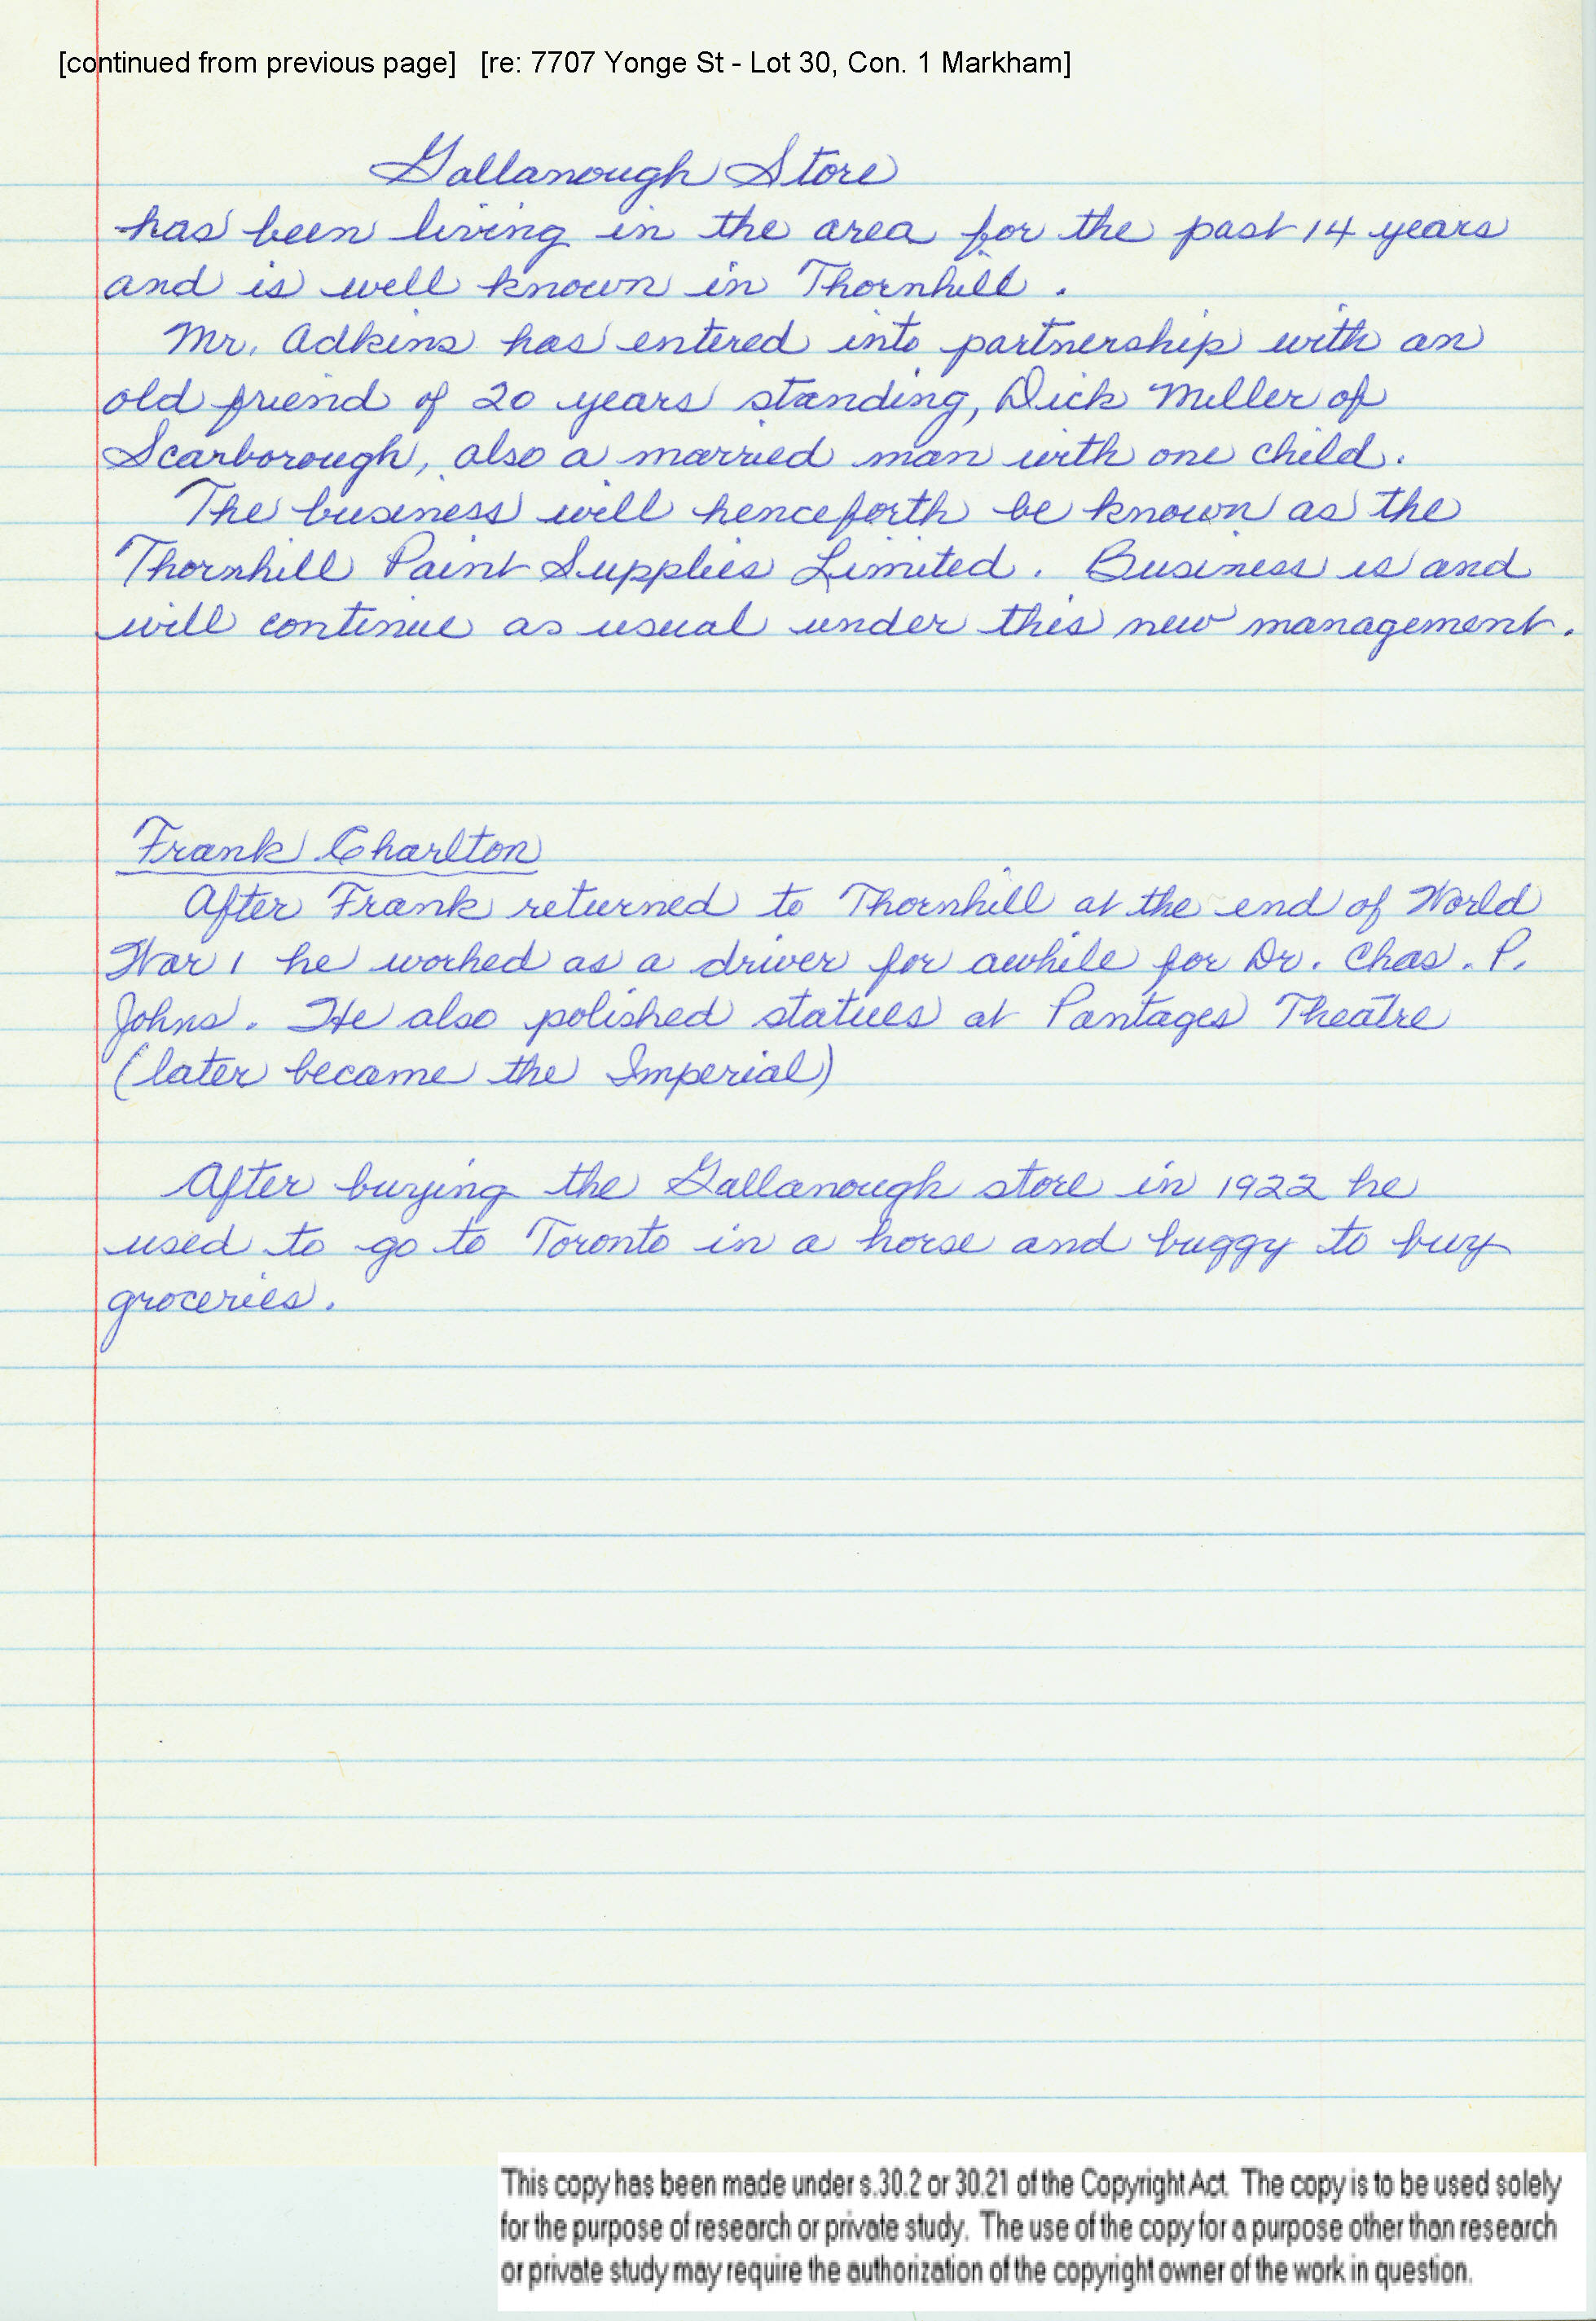 [continued from previous page]   [re: 7707 Yonge St - Lot 30, Con. 1 Markham]
Gallanough Store
has been living in the area for the past 14 years
and is well known in Thornhill.
Mr. Adkins has entered into partnership with an
old friend of 20 years standing, Dick Miller of
Scarborough, also a married man with one child.
The business will henceforth be known as the
Thornhill Paint Supplies Limited. Business is and
will continue as usual under this new management.
Frank Charlton
After Frank returned to Thornhill at the end of World
War 1 he worked as a driver for awhile for Dr. Chas. P.
Johns. He also polished statues at Pantages Theatre
(later became the Imperial)
After buying the Gallanough store in 1922 he
used to go to Toronto in a horse and buggy to buy
groceries.
This copy has been made under s.30.2 or 30.21 of the Copyright Act. The copy is to be used solely
for the purpose of research or private study. The use of the copy for a purpose other than research
or private study may require the authorization of the copyright owner of the work in question.